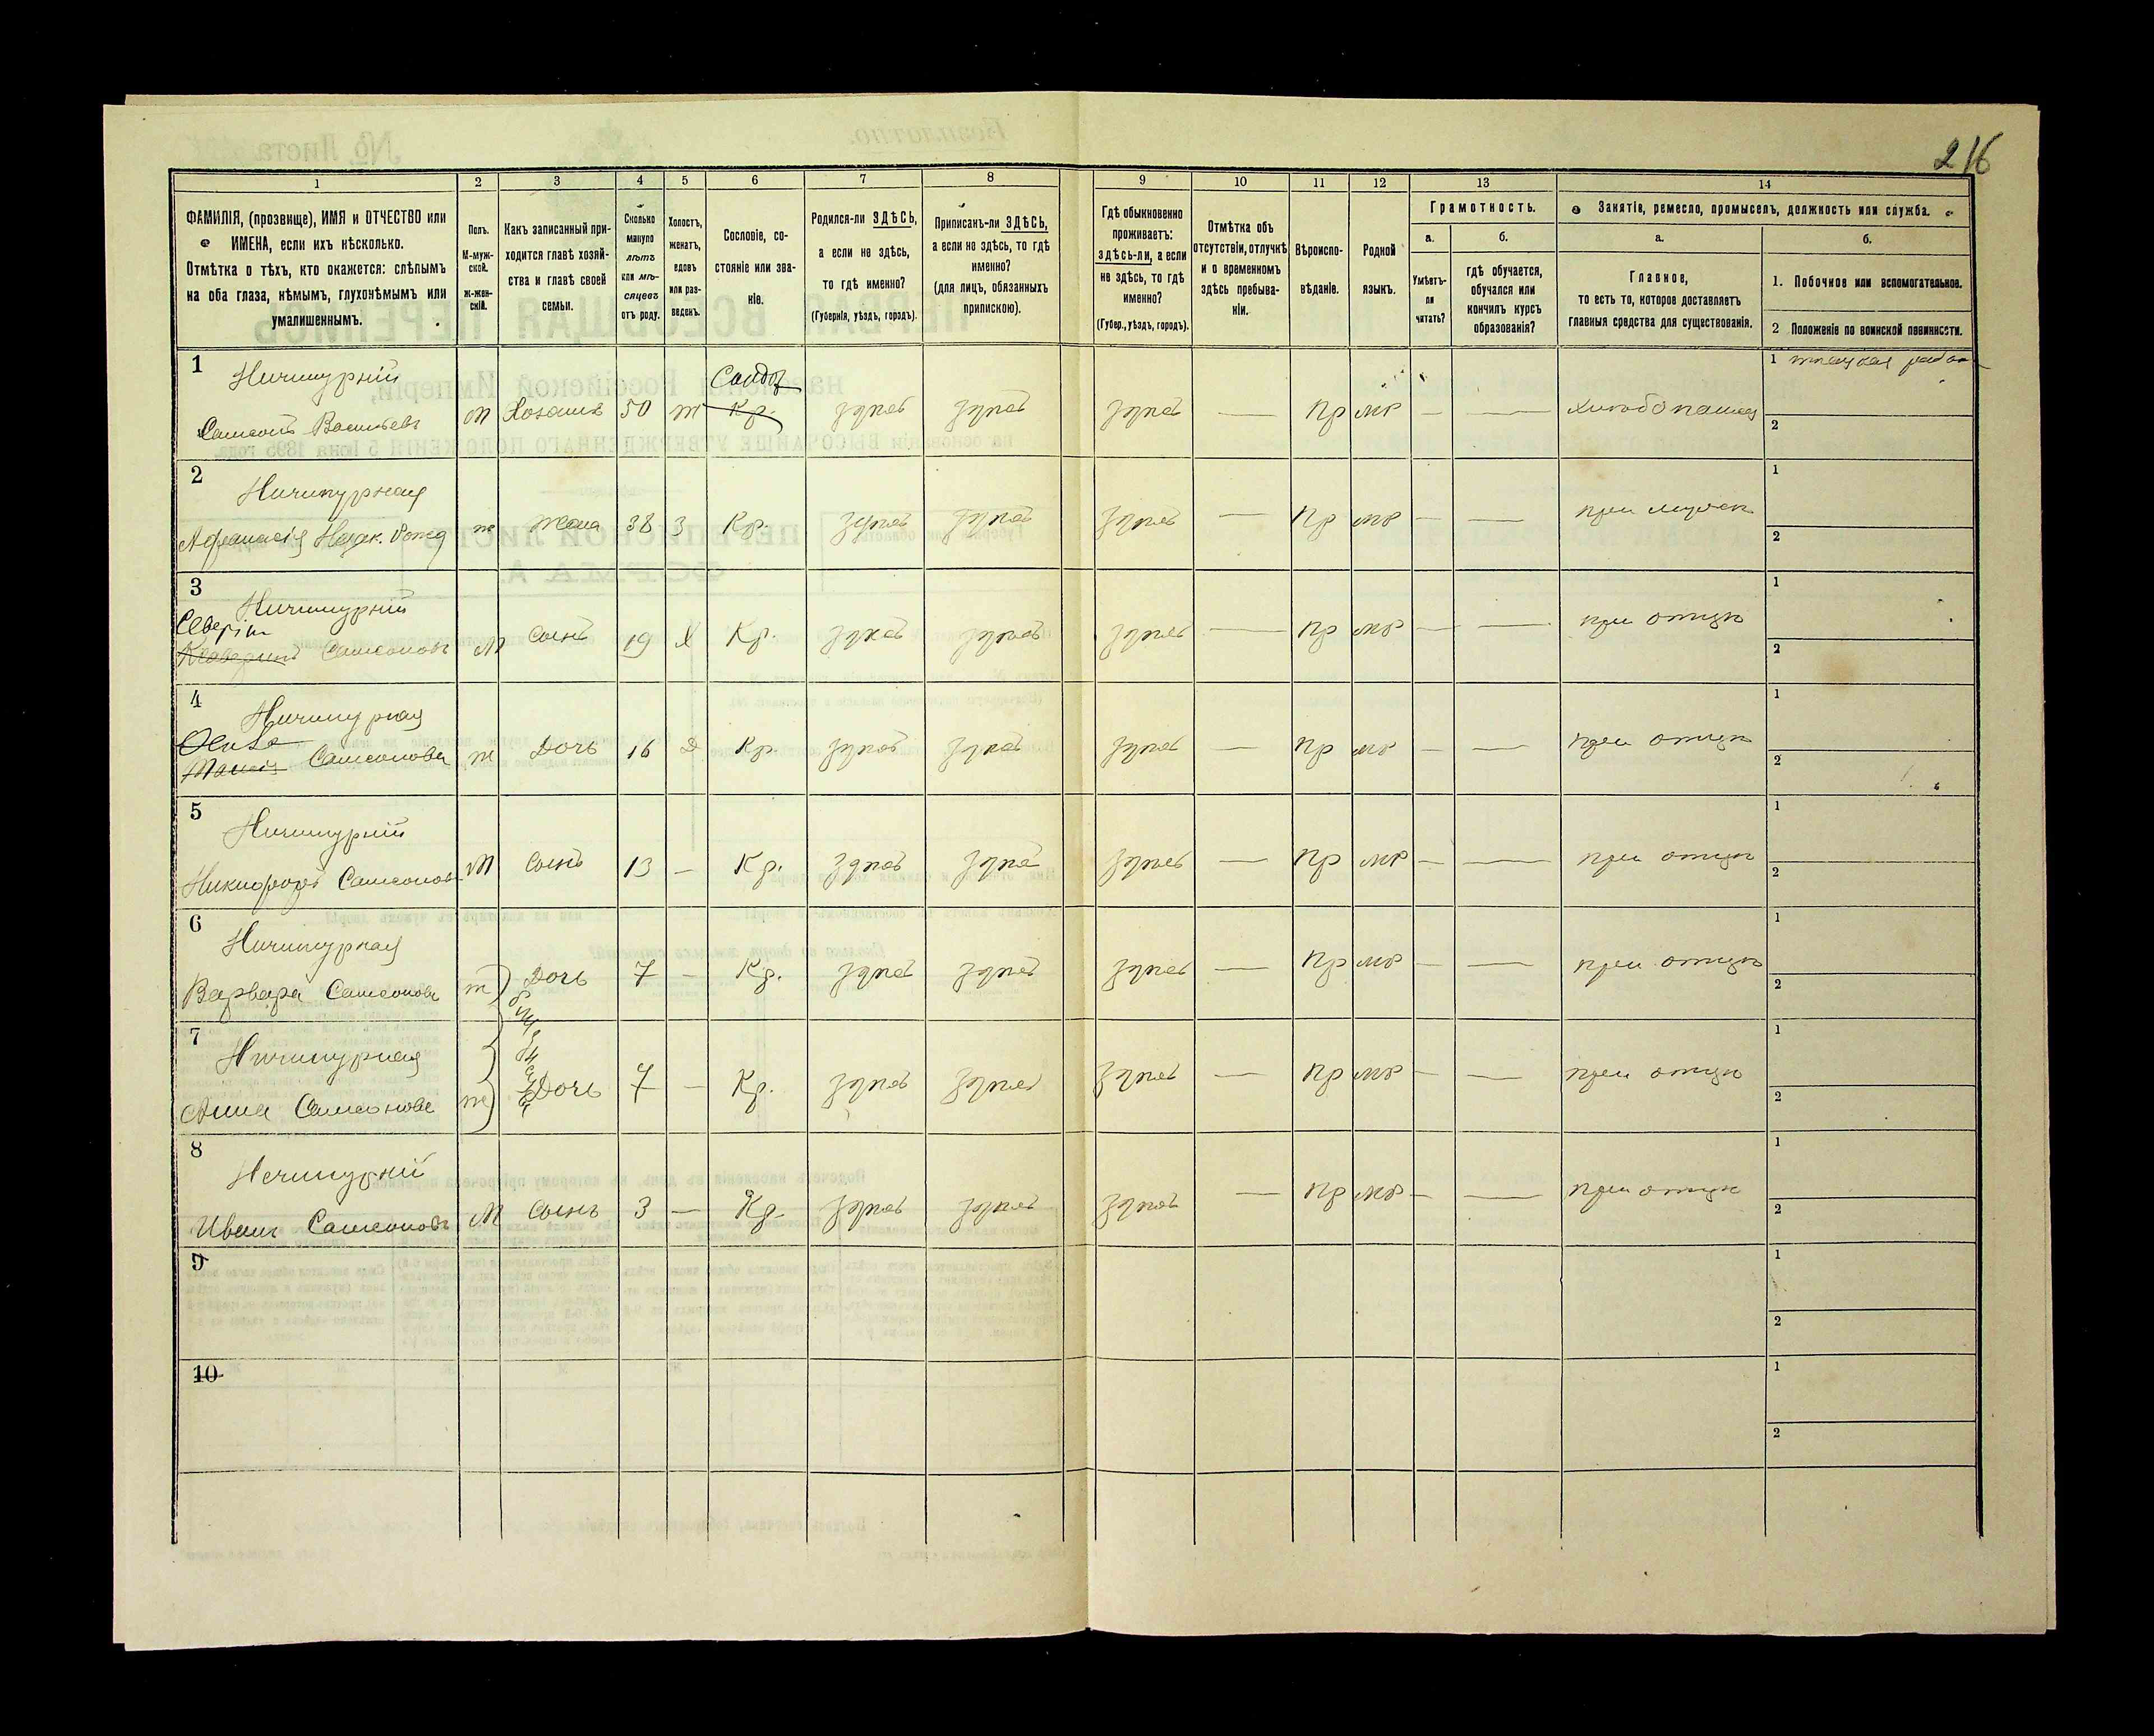 216
1 2 3 4 5 6 7 8 9 10 11 12 13 14
ФАМИЛІЯ, (прозвище), ИМЯ и ОТЧЕСТВО или
ИМЕНА, если ихъ нѣсколько.
Отмѣтка о тѣхъ, кто окажется: слѣпымъ
на оба глаза, нѣмымъ, глухонѣмымъ или
умалишеннымъ.
Полъ.
М-муж-
ской.
ж-жен-
скій.
Какъ записанный при-
ходится главѣ хозяй-
ства и главѣ своей
семьи.
Сколько
минуло
лѣтъ
или мѣ-
сяцевъ
отъ роду.
Холостъ,
женатъ,
вдовъ
или раз-
веденъ.
Сословіе, со-
стояніе или зва-
ніе.
Родился-ли ЗДѢСЬ,
а если не здѣсь,
то гдѣ именно?
(Губернія, уѣздъ, городъ).
Приписанъ-ли ЗДѢСЬ,
а если не здѣсь, то гдѣ
именно?
(для лицъ, обязанныхъ
припискою).
Гдѣ обыкновенно
проживаетъ:
здѣсь-ли, а если
не здѣсь, то гдѣ
именно?
(Губер., уѣздъ, городъ).
Отмѣтка объ
отсутствіи, отлучкѣ
и о временномъ
здѣсь пребыва-
ніи.
Вѣроиспо-
вѣданіе.
Родной
языкъ.
Грамотность.
а. б.
Умѣетъ-
ли
читать?
гдѣ обучается,
обучался или
кончилъ курсъ
образованія?
Занятіе, ремесло, промыселъ, должность или служба.
а. б.
Главное,
то есть то, которое доставляетъ
главныя средства для существованія.
1. Побочное или вспомогательное.
2 Положеніе по воинской повинности.
1 Ничипурній
Самсонъ Васильевъ М Хозяинъ 50 ж Кр. здѣсь здѣсь здѣсь — Пр мр — — хлѣбопашец
1
2
2 Ничипурная
Афанасія ж Жена 38 З Кр. здѣсь здѣсь здѣсь — Пр мр — — при мужѣ
1
2
3 Ничипурній
Северін
Самсоновъ М Сынъ 19 Х Кр. здѣсь здѣсь здѣсь — Пр мр — — при отцѣ
1
2
4 Ничипурная
Самсонова ж Дочь 16 Д Кр здѣсь здѣсь здѣсь — Пр мр — — при отцѣ
1
2
5 Ничипурній
Никифоръ Самсоновъ М Сынъ 13 — Кр. здѣсь здѣсь здѣсь — Пр мр — — при отцѣ
1
2
6 Ничипурная
Варвара Самсонова ж Дочь 7 — Кр. здѣсь здѣсь здѣсь — Пр мр — — при отцѣ
1
2
7 Ничипурная
Анна Самсонова ж Дочь 7 — Кр. здѣсь здѣсь здѣсь — Пр мр — — при отцѣ
1
2
8 Ничипурній
Иванъ Самсоновъ М Сынъ 3 — Кр. здѣсь здѣсь здѣсь — Пр мр — — при отцѣ
1
2
9
1
2
10
1
2